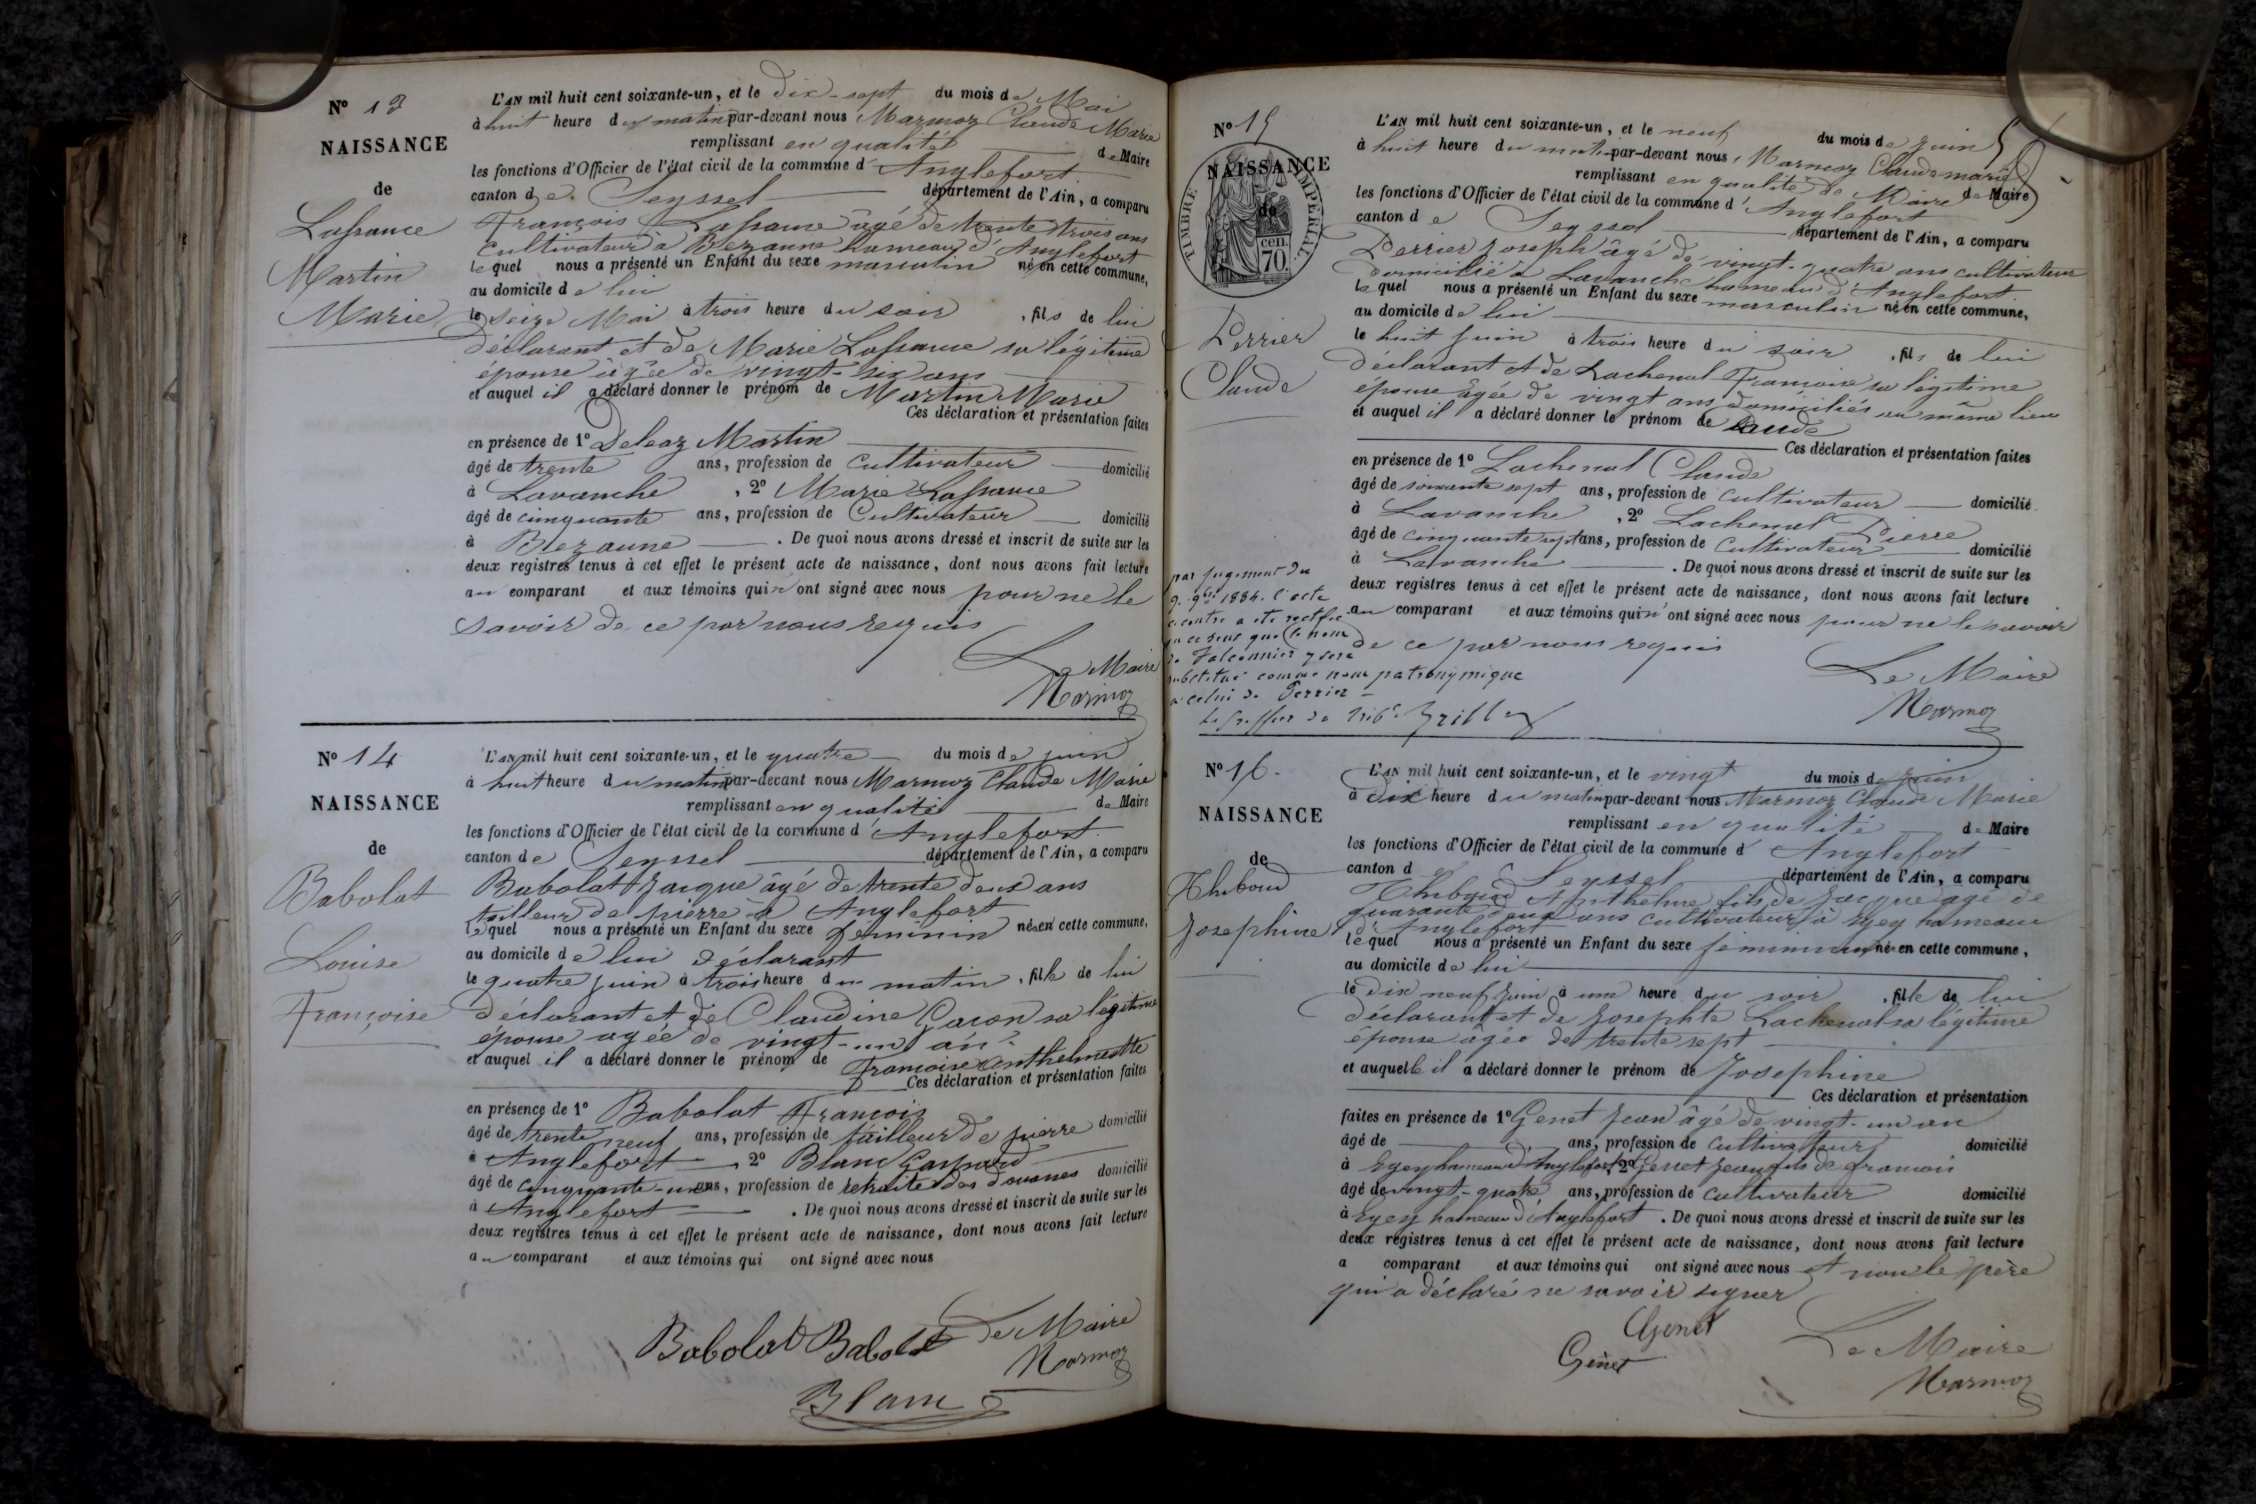 N° 13
NAISSANCE
de
Lafrance
Martin
Marie
L'AN mil huit cent soixante-un, et le dix-sept du mois de Mai
à huit heure du matin par-devant nous Marmoz Claude Marie
remplissant en qualité de Maire
les fonctions d'Officier de l'état civil de la commune d'Anglefort
canton de Seyssel département de l'Ain, a comparu
François Lafrance âgé de trente trois ans
cultivateur à Bezanne hameau d'Anglefort
lequel nous a présenté un Enfant du sexe masculin né en cette commune,
au domicile de lui
le seize Mai à trois heure du soir, fils de lui
déclarant et de Marie Lafrance sa légitime
épouse âgée de vingt-six ans
et auquel il a déclaré donner le prénom de Martin Marie
Ces déclaration et présentation faites
en présence de 1° Deleaz Martin
âgé de trente ans, profession de Cultivateur domicilié
à Lavanche, 2° Marie Lafrance
âgé de cinquante ans, profession de Cultivateur domicilié
à Bezanne. De quoi nous avons dressé et inscrit de suite sur les
deux registres tenus à cet effet le présent acte de naissance, dont nous avons fait lecture
au comparant et aux témoins qui n'ont signé avec nous pour ne le
savoir de ce par nous requis
Le Maire
Marmoz
N° 14
NAISSANCE
de
Babolat
Louise
Françoise
L'AN mil huit cent soixante-un, et le quatre du mois de juin
à huit heure du matin par-devant nous Marmoz Claude Marie
remplissant en qualité de Maire
les fonctions d'Officier de l'état civil de la commune d'Anglefort
canton de Seyssel département de l'Ain, a comparu
Babolat Jacque âgé de trente deux ans
tailleur de pierre à Anglefort
lequel nous a présenté un Enfant du sexe féminin née en cette commune,
au domicile de lui déclarant
le quatre juin à trois heure du matin, fille de lui
déclarant et de Claudine Gacon sa légitime
épouse âgée de vingt-un an
et auquel il a déclaré donner le prénom de Françoise Anthelmette
Ces déclaration et présentation faites
en présence de 1° Babolat François
âgé de trente neuf ans, profession de tailleur de pierre domicilié
à Anglefort, 2° Blanc Gaspard
âgé de cinquante-un ans, profession de retraité des douanes domicilié
à Anglefort. De quoi nous avons dressé et inscrit de suite sur les
deux registres tenus à cet effet le présent acte de naissance, dont nous avons fait lecture
au comparant et aux témoins qui ont signé avec nous
Babolat Babolat Le Maire
Marmoz
Blanc
N° 15
NAISSANCE
de
TIMBRE IMPÉRIAL.
70 cen.
Perrier
Claude
L'AN mil huit cent soixante-un, et le neuf du mois de juin
à huit heure du matin par-devant nous Marmoz Claude marie
remplissant en qualité de Maire de Maire
les fonctions d'Officier de l'état civil de la commune d'Anglefort
canton de Seyssel département de l'Ain, a comparu
Perrier Joseph âgé de vingt-quatre ans cultivateur
domicilié à Lavanche hameau d'Anglefort
lequel nous a présenté un Enfant du sexe masculin né en cette commune,
au domicile de lui
le huit juin à trois heure du soir, fils de lui
déclarant et de Lachenal Françoise sa légitime
épouse âgée de vingt ans domiciliés au même lieu
et auquel il a déclaré donner le prénom de Claude
Ces déclaration et présentation faites
en présence de 1° Lachenal Claude
âgé de soixante sept ans, profession de cultivateur domicilié
à Lavanche, 2° Lachenal Pierre
âgé de cinquante sept ans, profession de Cultivateur domicilié
à Lavanche. De quoi nous avons dressé et inscrit de suite sur les
deux registres tenus à cet effet le présent acte de naissance, dont nous avons fait lecture
au comparant et aux témoins qui n'ont signé avec nous pour ne le savoir
de ce par nous requis
Le Maire
Marmoz
par jugement du
9. 9bre 1884. l'acte
ci contre a été rectifié
en ce sens que le nom
de Falconnier y sera
substitué comme nom patronymique
à celui de Perrier
Le greffier du Trib.
N° 16
NAISSANCE
de
Thiboud
Josephine
L'AN mil huit cent soixante-un, et le vingt du mois de juin
à dix heure du matin par-devant nous Marmoz Claude Marie
remplissant en qualité de Maire
les fonctions d'Officier de l'état civil de la commune d'Anglefort
canton d Seyssel département de l'Ain, a comparu
Thiboud Anthelme fils de Jacque âgé de
quarante deux ans cultivateur à Eyey hameau
d'Anglefort
lequel nous a présenté un Enfant du sexe féminin née en cette commune,
au domicile de lui
le dix neuf juin à une heure du soir, fille de lui
déclarant et de Josephte Lachenal sa légitime
épouse âgée de trente sept
et auquelle il a déclaré donner le prénom de Josephine
Ces déclaration et présentation
faites en présence de 1° Genet Jean âgé de vingt-un an
âgé de ans, profession de cultivateur domicilié
à Eyey hameau d'Anglefort, 2° Genet Jean fils de francois
âgé de vingt-quatre ans, profession de cultivateur domicilié
à Eyey hameau d'Anglefort. De quoi nous avons dressé et inscrit de suite sur les
deux registres tenus à cet effet le présent acte de naissance, dont nous avons fait lecture
a comparant et aux témoins qui ont signé avec nous et non le père
qui a déclaré ne savoir signer
Genet
Genet
Le Maire
Marmoz